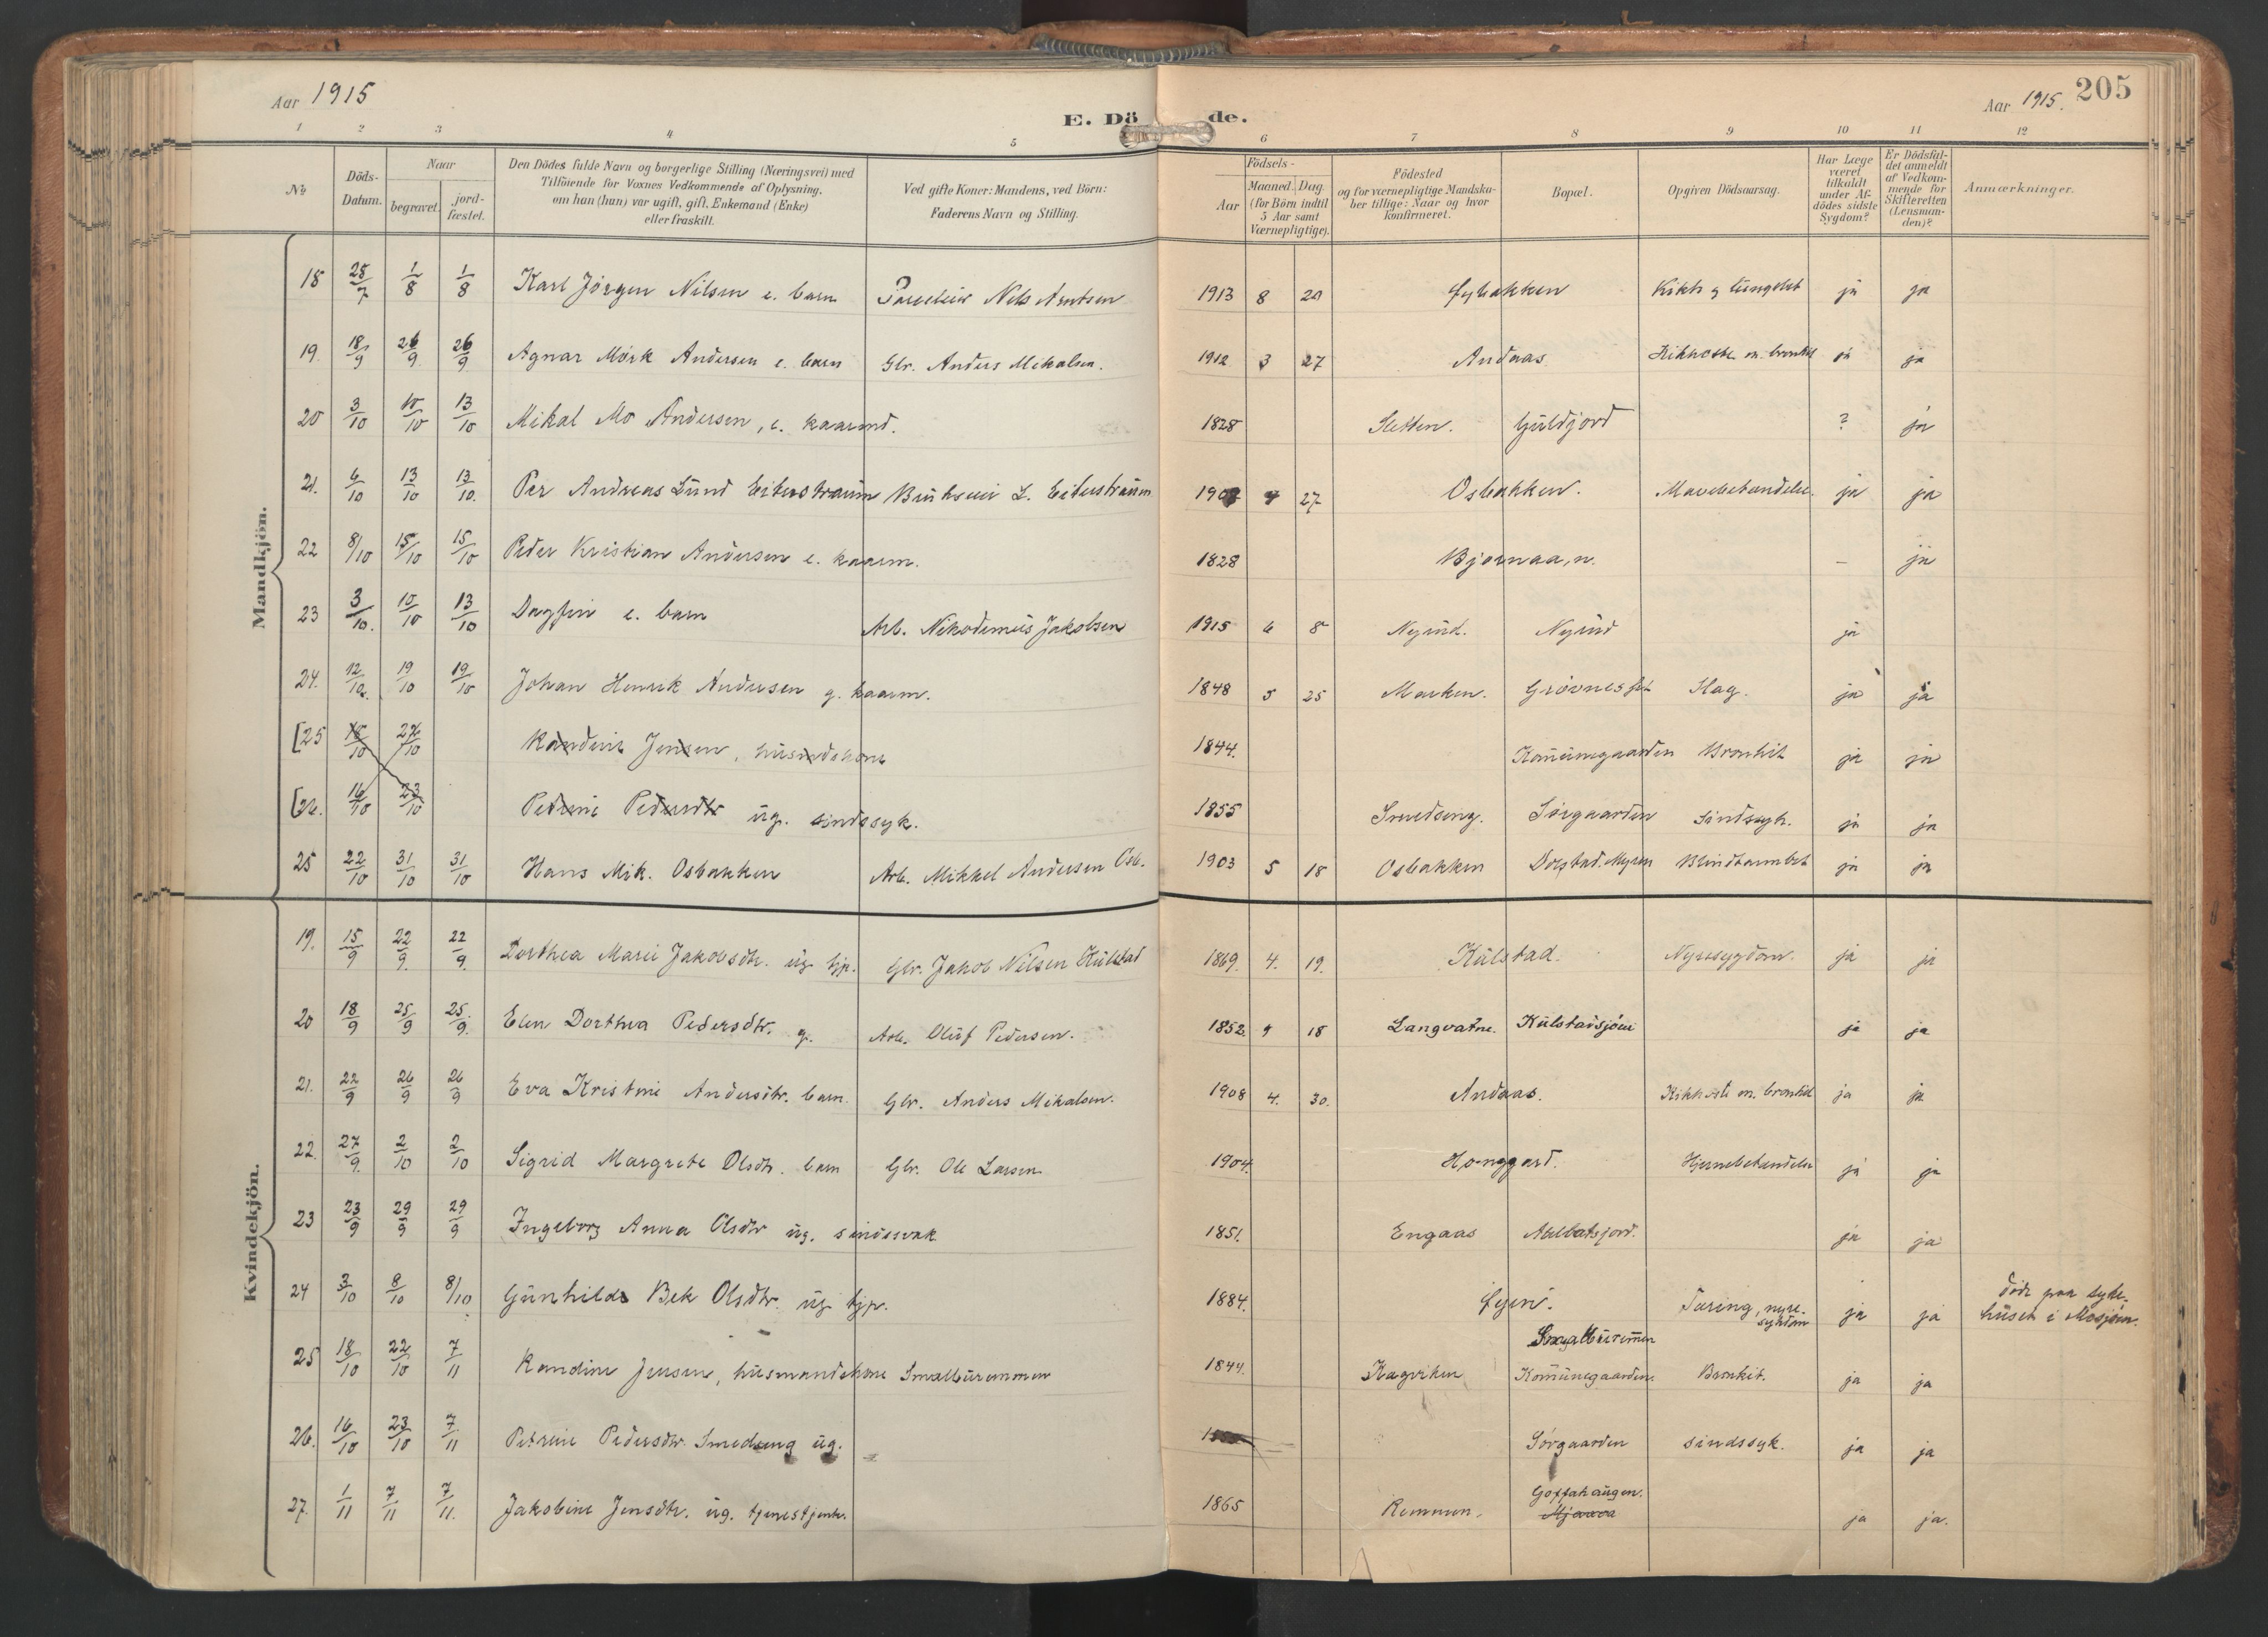 Aar 1915
E. Döde.
Aar 1915. 205
1 2 3 4 5 6 7 8 9 10 11 12
No
Döds-Datum.
Naar
begravet.
jord-fæstet.
Den Dödes fulde Navn og borgerlige Stilling (Næringsvei) med
Tilföiende for Voxnes Vedkommende af Oplysning,
om han (hun) var ugift, gift, Enkemand (Enke)
eller fraskilt.
Ved gifte Koner: Mandens, ved Börn:
Faderens Navn og Stilling.
Födsels-
Aar
Maaned. Dag.
(for Börn indtil
5 Aar samt
Værnepligtige).
Födested
og for værnepligtige Mandska-
ber tillige: Naar og hvor
konfirmeret.
Bopæl.
Opgiven Dödsaarsag.
Har Læge
været
tilkaldt
under Af-
dödes sidste
Sygdom?
Er Dödsfal-
det anmeldt
af Vedkom-
mende for
Skifteretten
(Lensman-
den)?
Anmærkninger.
Mandkjön.
18 25/7 1/8 1/8 Karl Jörgen Nilsen e. barn Nils Arntsen 1913 8 20 ja ja
19. 18/9 26/9 26/9 Agnar Mörk Andersen e. barn Gbr. Anders Mikalsen. 1912 3 27 Andaas Kikhoste m. bronkit ja ja
20 3/10 10/10 13/10 Mikal Mo Andersen, e. kaarmd. 1828 Sletten. Guldfjord ? ja
21. 6/10 13/10 13/10. Per Andreas Lund Eiterstraum L. Eiterstraum 27 Osbakken. ja ja
22 8/10 15/10 15/10 Peder Kristian Andersen e. kaarm. 1828 Bjornaa, n. - ja
23 3/10. 10/10 13/10 Dagfin e. barn Arb. Nikodemus Jakobsen 1915 6 8 Nyrud. Nyrud ja
24. 12/10. 19/10 19/10 Johan Henrik Andersen g. kaarm. 1848 5 25 Marken. Slag. ja ja
[25 18/10 22/10 Randine Jensen, husmdskone 1844. Kommunegaarden Bronkit ja ja
[26. 16/10 23/10 Petrine Pedersdtr ug. sindssyk. 1855 Smedseng. Sörgaarden Sindssyk. ja ja
25 22/10 31/10 31/10 Hans Mik. Osbakken Arb. Mikkel Andersen Osb. 1903 5 18 Osbakken Dolstad. Myren Blindtarmbet ja ja
Kvindekjön.
19. 15/9 22/9. 22/9. Dorthea Marie Jakobsdtr. ug. tjp. Gbr. Jakob Nilsen Kulstad 1869. 4. 19. Kulstad. Nyresygdom. ja ja
20 18/9 25/9 25./9. Elen Dorthea Pedersdtr. g. Arb. Oluf Pedersen. 1852. 9 18 Langvatne. Kulstadsjöen ja ja
21. 22/9 26/9 26/9 Eva Kristine Andersdtr. barn. Gbr. Anders Mikalsen. 1908 4. 30. Andaas. Kikhoste m. bronkit ja ja
22. 27/9. 2/10 2/10 Sigrid Margrete Olsdtr. barn Gbr. Ole Larsen 1904. Honggard. Hjernebetændelse ja ja
23 23/9 29/9 29/9 Ingeborg Anna Olsdtr ug. sindssvak 1851. Engaas ja ja
24 3/10 8/10 8/10 Gunhild Bek Olsdtr. ug. tjp. 1884. Tæring, nyre-sykdom ja ja död paa syke-
huset i Mosjöen.
25 18/10 22/10 7/11 Randine Jensen, husmandskone Smalburemmen 1844. Kagviken Smalburemmen Kommunegaarden. Bronkit. ja ja
26. 16/10 23/10 7/11 Petrine Pedersdtr. Smedseng ug. Sörgaarden sindssyk. ja ja
27. 1/11 7/11 7/11. Jakobine Jensdtr. ug. tjenestjente. 1865 Remmen. Goffahaugen. ja ja.